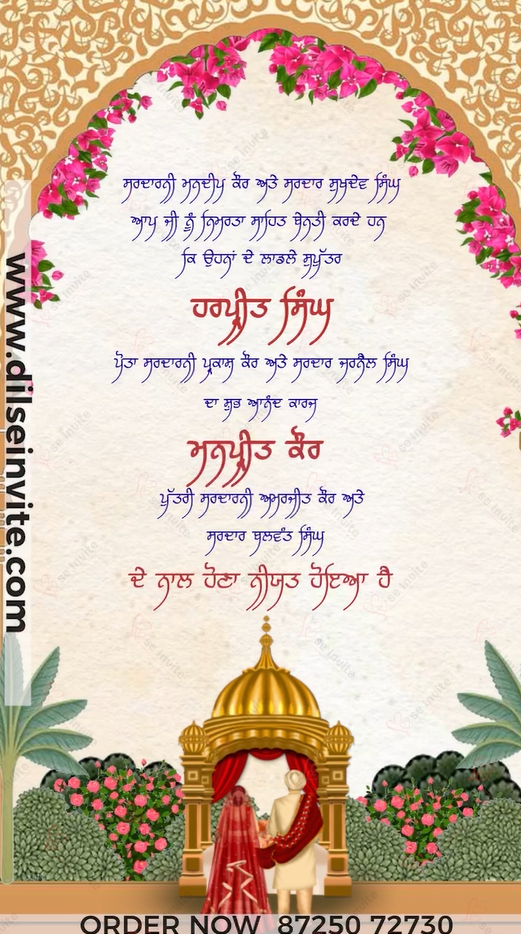 ਸਰਦਾਰਨੀ ਮਨਦੀਪ ਕੌਰ ਅਤੇ ਸਰਦਾਰ ਸੁਖਦੇਵ ਸਿੰਘ
ਆਪ ਜੀ ਨੂੰ ਨਿਮਰਤਾ ਸਾਹਿਤ ਬੇਨਤੀ ਕਰਦੇ ਹਨ
ਕਿ ਉਹਨਾਂ ਦੇ ਲਾਡਲੇ ਸੁਪੁੱਤਰ
ਹਰਪ੍ਰੀਤ ਸਿੰਘ
ਪੋਤਾ ਸਰਦਾਰਨੀ ਪ੍ਰਕਾਸ਼ ਕੌਰ ਅਤੇ ਸਰਦਾਰ ਜਰਨੈਲ ਸਿੰਘ
ਦਾ ਸ਼ੁਭ ਆਨੰਦ ਕਾਰਜ
ਮਨਪ੍ਰੀਤ ਕੌਰ
ਪੁੱਤਰੀ ਸਰਦਾਰਨੀ ਅਮਰਜੀਤ ਕੌਰ ਅਤੇ
ਸਰਦਾਰ ਬਲਵੰਤ ਸਿੰਘ
ਦੇ ਨਾਲ ਹੋਣਾ ਨੀਯਤ ਹੋਇਆ ਹੈ
www.dilseinvite.com
ORDER NOW 87250 72730